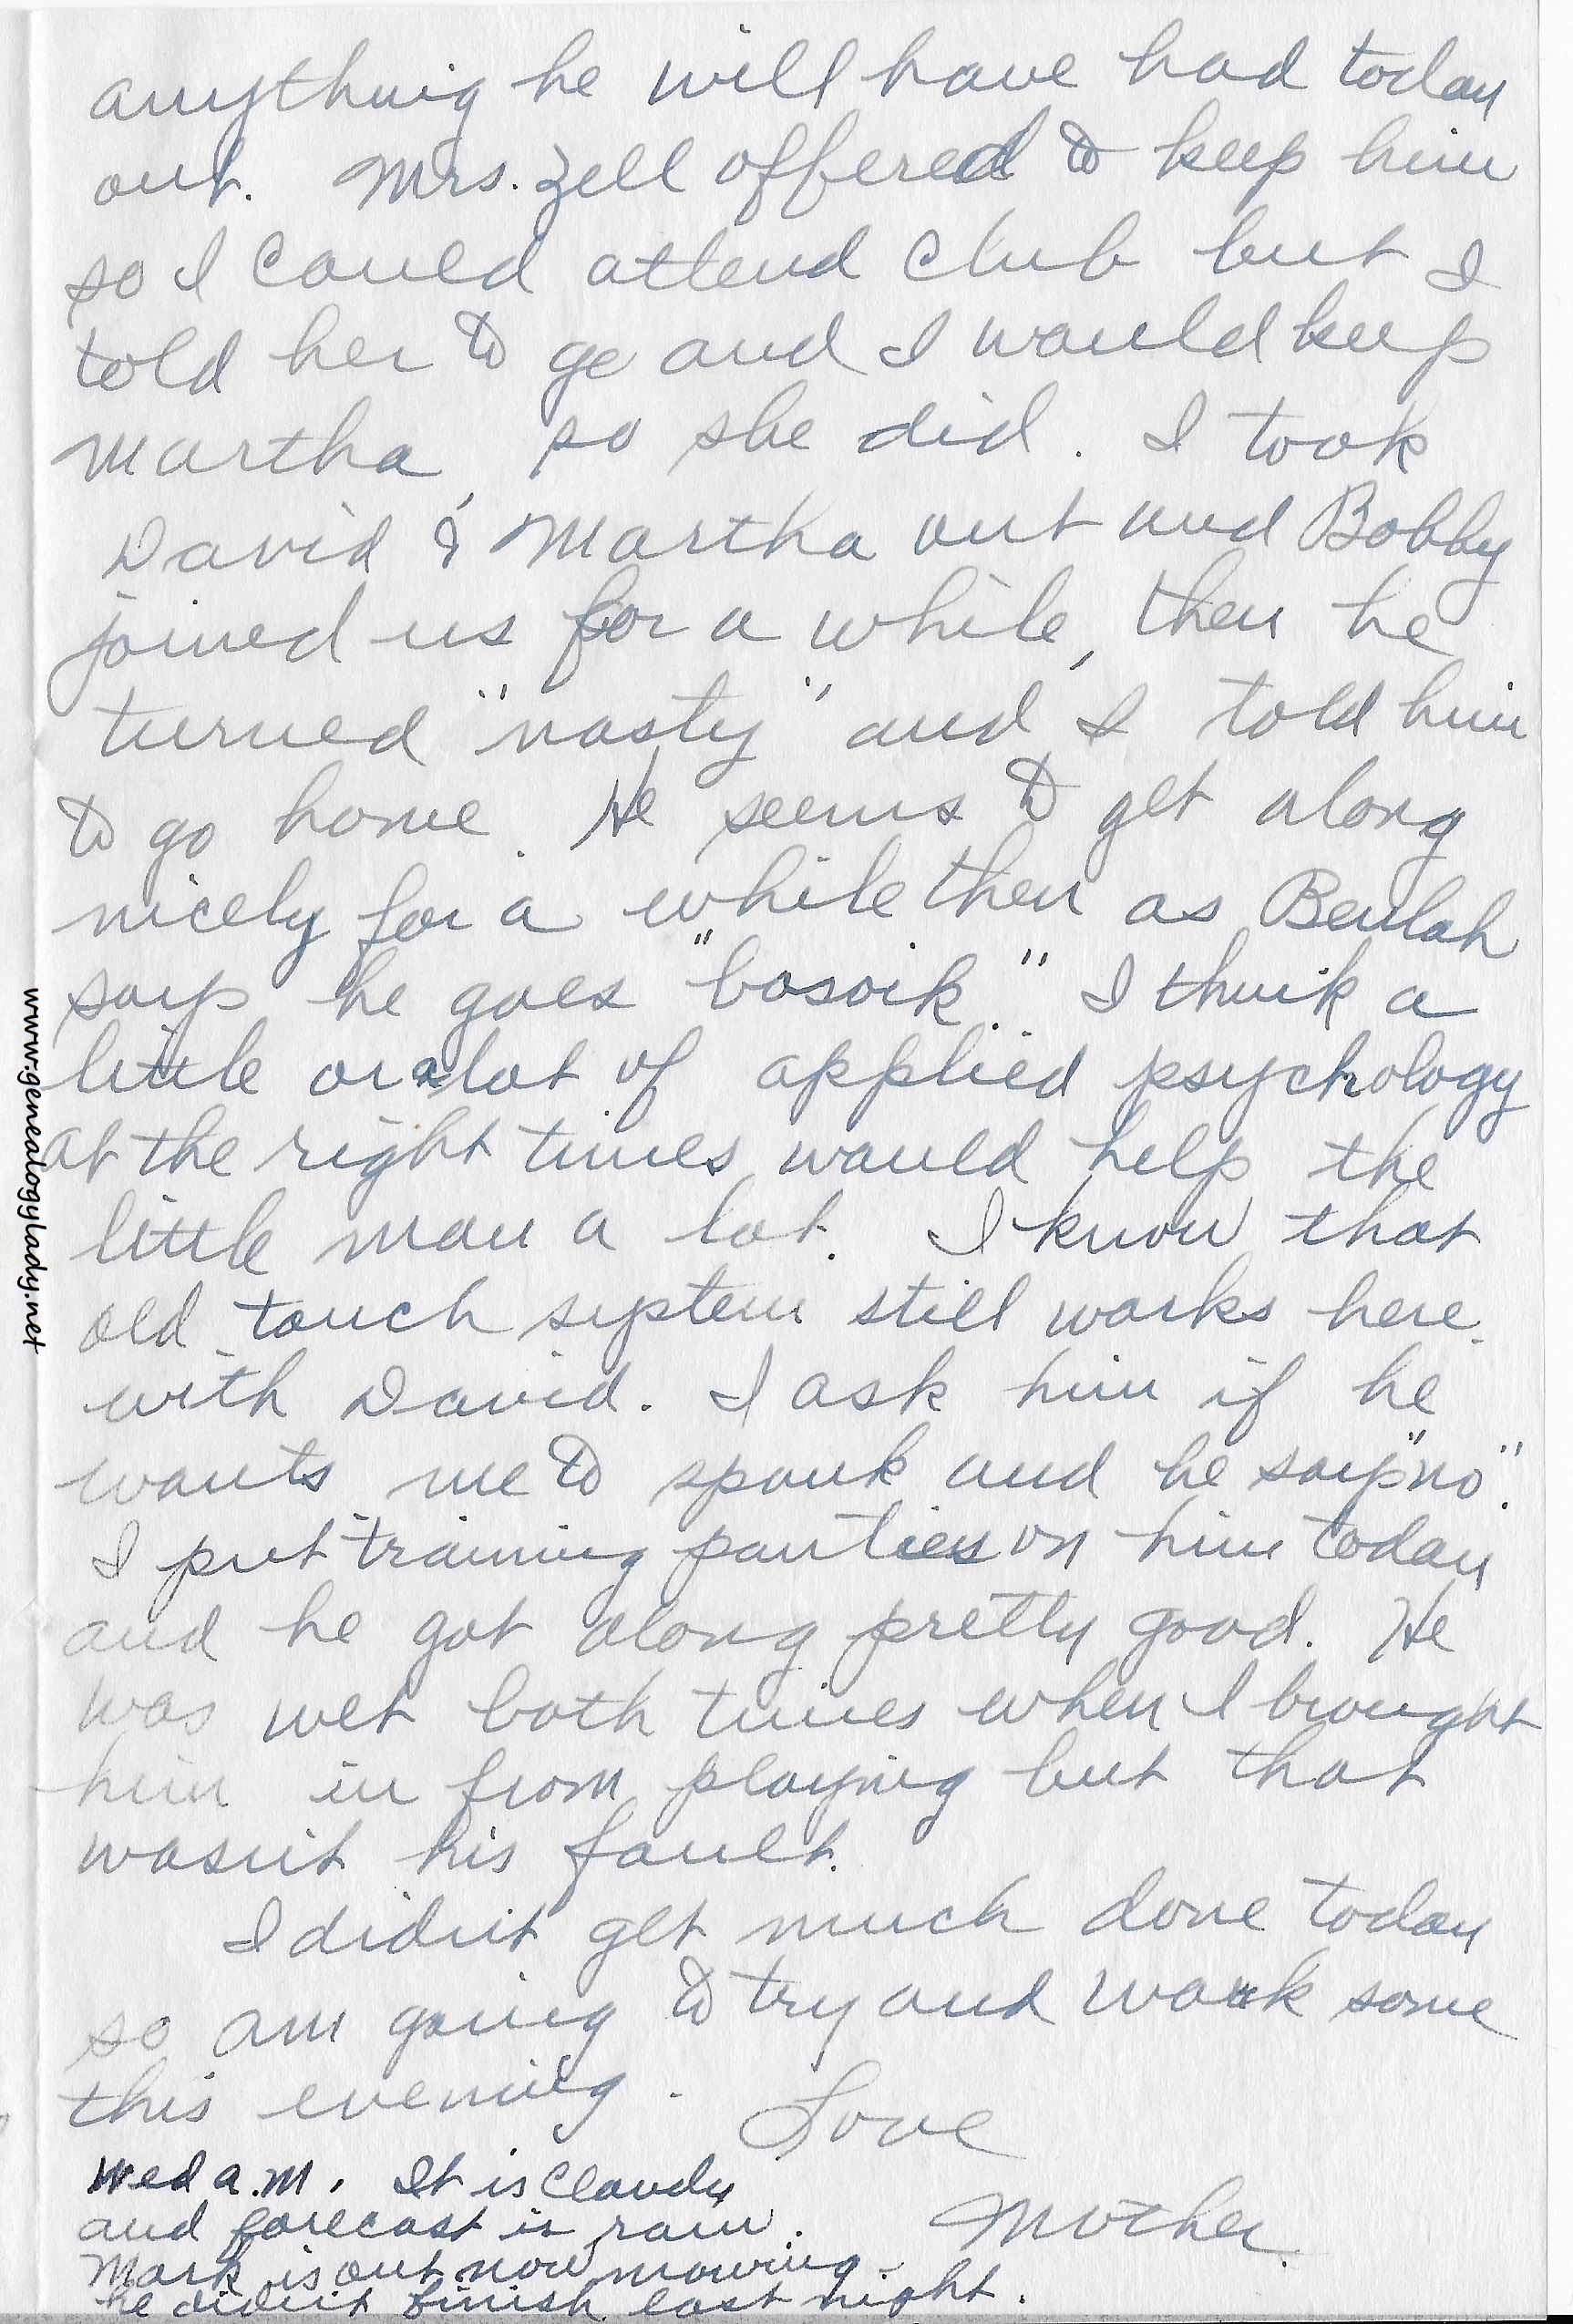 anything he will have had today
out. Mrs. Zell offered to keep him
so I could attend Club but I
told her to go and I would keep
Martha, so she did. I took
David & Martha out and Bobby
joined us for a while, then he
turned "nasty" and I told him
to go home. He seems to get along
nicely for a while then as Beulah
says he goes "bosoik." I think a
little or a lot of applied psychology
at the right times would help the
little man a lot. I know that
old touch system still works here
with David. I ask him if he
wants me to spank and he says "no".
I put training panties on him today
and he got along pretty good. He
was wet both times when I brought
him in from playing but that
wasn't his fault.
I didn't get much done today
so am going to try and work some
this evening.
Love
Mother.
Wed a.m. It is Cloudy
and forecast is rain.
Mark is out now mowing -
he didn't finish last night.
www.genealogylady.net